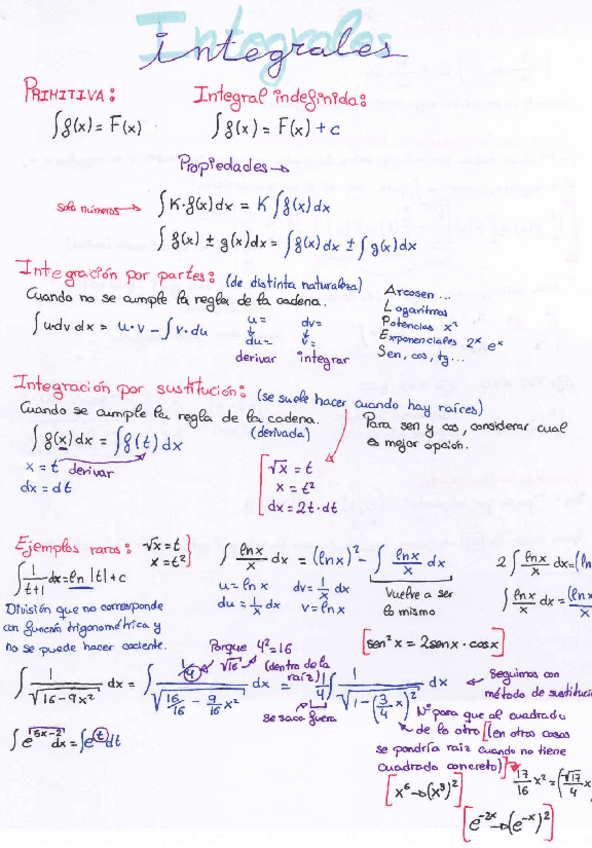 Integrales
integrales
PRIMITIVA:
∫f(x) = F(x)
Integral indefinida:
∫f(x) = F(x) + c
Propiedades →
solo números → ∫K·f(x)dx = K∫f(x)dx
∫f(x) ± g(x)dx = ∫f(x)dx ± ∫g(x)dx
Integración por partes: (de distinta naturaleza)
Cuando no se cumple la regla de la cadena.
∫u·dv dx = u·v - ∫v·du
u= dv=
du= v=
derivar integrar
Arcosen...
Logaritmos
Potencias x²
Exponenciales 2ˣ eˣ
Sen, cos, tg...
Integración por sustitución: (se suele hacer cuando hay raíces)
Cuando se cumple la regla de la cadena.
(derivada)
∫f(x)dx = ∫f(t)dx
x = t derivar
dx = dt
√x = t
x = t²
dx = 2t·dt
Para sen y cos, considerar cual
es mejor opción.
Ejemplos raros: √x = t
x = t²
∫1/(t+1) dx = ln|t| + c
División que no corresponde
con función trigonométrica y
no se puede hacer cociente.
∫ lnx/x dx = (lnx)² - ∫ lnx/x dx
u = lnx dv = 1/x dx
du = 1/x dx v = lnx
Vuelve a ser
lo mismo
2∫ lnx/x dx = (ln
∫ lnx/x dx = (lnx
[sen²x = 2senx·cosx]
Porque 4² = 16
√16 (dentro de la
raíz)
∫ 1/√(16-9x²) dx = ∫ (1/4)/√(16/16 - 9/16 x²) dx = 1/4 ∫ 1/√(1-(3/4 x)²) dx
Se saca fuera
Seguimos con
método de sustitució
Nº para que al cuadrado
de lo otro [(en otros casos
se pondría raíz cuando no tiene
cuadrado concreto)]
17/16 x² = (√17/4 x
∫e^(√(5x-2)) dx = ∫e^(t) dt
[x⁶ → (x³)²]
[e⁻²ˣ → (e⁻ˣ)²]